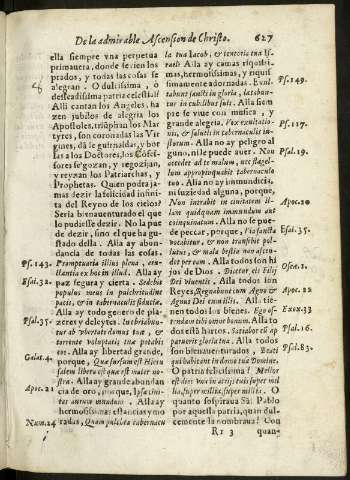 De la admirable Ascension de Christo. 627
ella siempre vna perpetua
primauera, donde se rien los
prados, y todas las cosas se
alegran. O dulcissima, ò
desseadissima patria celestial!
Alli cantan los Angeles, ha
zen jubilos de alegria los
Apostoles, triūpiran los Mar
tyres, son coronadas las Vir
gines, dā de guirnaldas, y bor
las a los Doctores, los Cōfes-
sores se gozan, y regozijan,
y reyzan los Patriarchas, y
Prophetas. Quien podra ja-
mas dezir la felicidad infini
ta del Reyno de los cielos?
Seria bienauenturado el que
lo pudiesse dezir. No la pue
de dezir, sino el que ha gu-
stado della. Alla ay abun-
dancia de todas las cosas.
Psal. 143. Promptuaria illius plena, eru-
ctantia ex hoc in illud. Alla ay
Esai. 32. paz segura y cierta. Sedebit
populus meus in pulchritudine
pacis, & in tabernaculis fiduciæ.
Alla ay todo genero de pla-
Psal. 35. zeres y deleytes. Inebriabun-
tur ab vbertate domus tuæ, &
torrente voluptatis tuæ potabis
eos. Alla ay libertad grande,
Galat. 4. porque, Quæ sursum est Hieru
salem libera est quæ est mater no-
stra. Alla ay grande abundan
Apoc. 21 cia de oro, porque, Ipsa ciui-
tas aurum mundum. Alla ay
hermosissimas estancias y mo
Num. 24 radas, Quam pulchra tabernacu
la tua Iacob, & tentoria tua Is-
rael! Alla ay camas riquissi-
mas, hermosissimas, y riquis
simamente adornadas. Exul- Ps. 149.
tabunt sancti in gloria, lætabun-
tur in cubilibus suis. Alla siem
pre se viue con musica, y
grande alegria. Vox exultatio- Ps. 117.
nis, & salutis in tabernaculis iu-
storum. Alla no ay peligro al
guno, ni le puede auer. Non Psal. 19.
accedet ad te malum, nec flagel-
lum appropinquabit tabernaculo
tuo. Alla no ay immundicia,
ni suziedad alguna, porque,
Non intrabit in ciuitatem il- Apoc. 20
lam quidquam immundum aut
coinquinatum. Alla no se pue-
de peccar, porque, Via sancta Esai. 35.
vocabitur, & non transibit pol-
lutus, & mala bestia non ascen-
det per eam. Alla todos son hi Osea. 1.
jos de Dios. Dicetur eis Filij
Dei viuentis. Alla todos son
Reyes, Regnabunt cum Agno & Apoc. 22
Agnus Dei cum illis. Alli tie-
nen todos los bienes. Ego os- Exo. 33
tendam tibi omne bonum. Alla to
dos està hartos. Satiabor cū ap Psal. 16.
paruerit gloria tua. Alla todos
son bienauenturados, Beati Psal. 83.
qui habitant in domo tua Domine.
O patria felicissima! Melior
est dies vna in atrijs tuis super mil
lia, super millia, super millia. O
quanto sospiraua San Pablo
por aquella patria, quan dul-
cemente la nombraua! Con
Rr 3 quan-